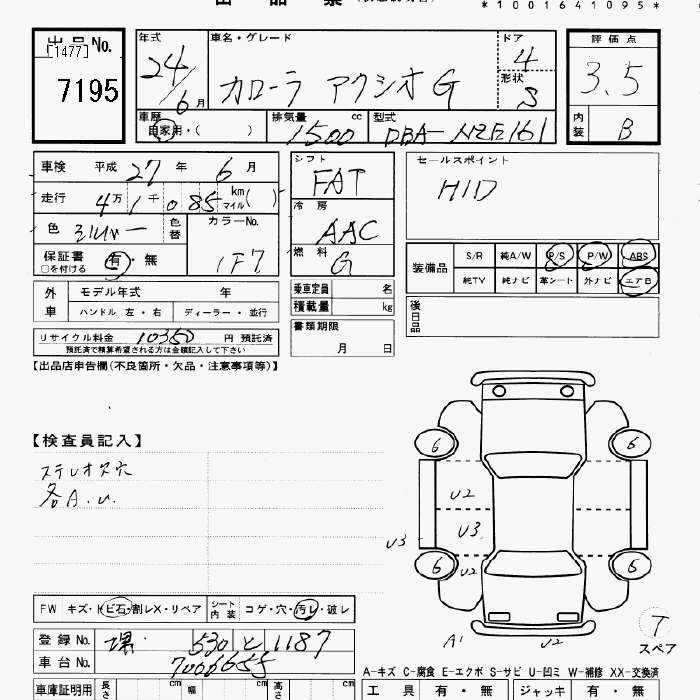 *1001641095*
出品No.
[1477]
7195
年式
24/6月
車名・グレード
カローラ アクシオ G
ドア
4
形状
S
評価点
3.5
内装
B
車歴
自家用・( )
排気量 cc
1500
型式
DBA-NZE161
車検 平成 27 年 6 月
走行 4万 1千 085 km マイル( )
色 シルバー
色替
カラーNo.
1F7
保証書 有・無
□を付ける
シフト
FAT
冷房
AAC
燃料
G
セールスポイント
HID
装備品
S/R 純A/W P/S P/W ABS
純TV 純ナビ 革シート 外ナビ エアB
外車
モデル年式 年
ハンドル 左・右 ディーラー・並行
乗車定員 名
積載量 kg
後日品
リサイクル料金 10350 円 預託済
預託済で精算希望される方は金額記入して下さい
書類期限
月 日
【出品店申告欄(不良箇所・欠品・注意事項等)】
【検査員記入】
ステレオ欠穴
各A.U.
6 6
U2
U3 U3
6 U2 6
A1 U2
T
スペア
FW キズ・トビ石・割レX・リペア
シート内装 コゲ・穴・汚レ・破レ
登録No. 堺 530 と 1187
車台No. 7066655
A-キズ C-腐食 E-エクボ S-サビ U-凹ミ W-補修 XX-交換済
車庫証明用 長さ cm 幅 cm 高さ cm
工具 有・無 ジャッキ 有・無